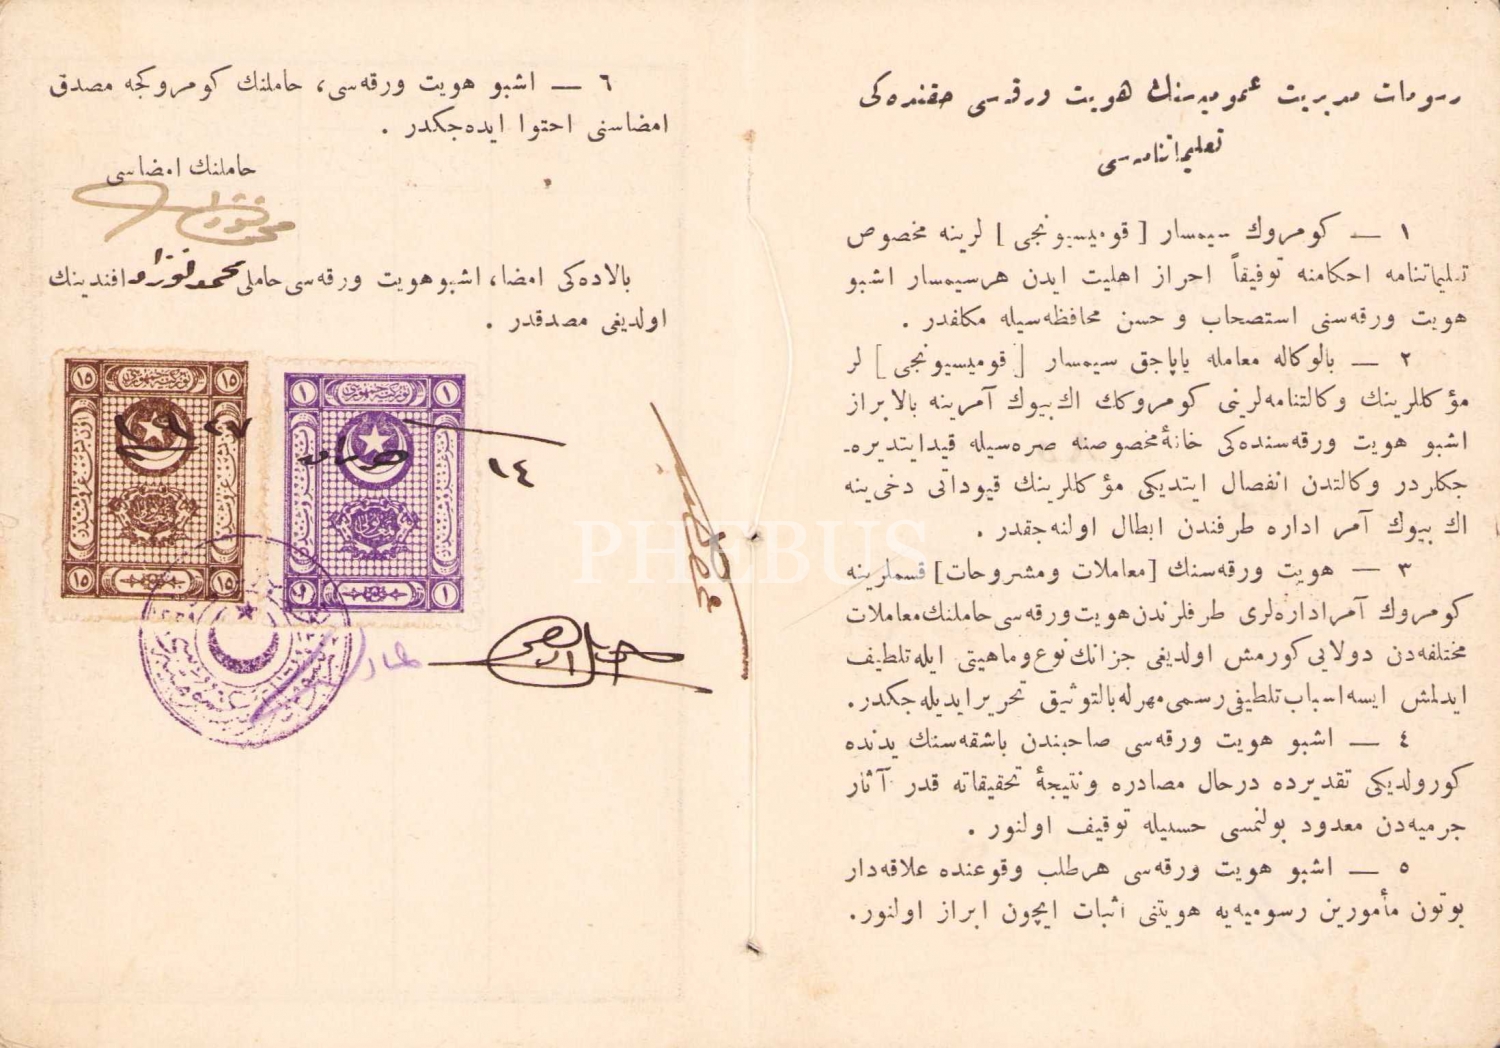 رسومات مدیریت عمومیه‌سنك هویت ورقه‌سی حقنده‌کی
تعلیماتنامه‌سی
۱ — کومروك سیمسار [ قومیسیونجی ] لرینه مخصوص
تعلیماتنامه احکامنه توفیقاً احراز اهلیت ایدن هرسیمسار اشبو
هویت ورقه‌سنی استصحاب و حسن محافظه‌سیله مکلفدر .
۲ — بالوکاله معامله یاپاجق سیمسار [ قومیسیونجی ] لر
مؤکللرینك وکالتنامه‌لرینی کومروکك اك بیوك آمرینه بالابراز
اشبو هویت ورقه‌سنده‌کی خانهٔ مخصوصنه صره‌سیله قیدایتدیره‌-
جکلردر وکالتدن انفصال ایتدیکی مؤکللرینك قیودانی دخی‌ینه
اك بیوك آمر اداره طرفندن ابطال اولنه‌جقدر .
۳ — هویت ورقه‌سنك [معاملات ومشروحات] قسملرینه
کومروك آمراداره‌لری طرفلرندن هویت ورقه‌سی حاملنك معاملات
مختلفه‌دن دولایی کورمش اولدیغی جزانك نوع وماهیتی ایله تلطیف
ایدلمش ایسه اسباب تلطیفی رسمی مهرله بالتوثیق تحریر ایدیله‌جکدر .
٤ — اشبو هویت ورقه‌سی صاحبندن باشقه‌سنك یدنده
کورولدیکی تقدیرده درحال مصادره و نتیجهٔ تحقیقاته قدر آثار
جرمیه‌دن معدود بولنمسی حسبیله توقیف اولنور .
٥ — اشبو هویت ورقه‌سی هرطلب وقوعنده علاقه‌دار
بوتون مأمورین رسومیه‌یه هویتنی اثبات ایچون ابراز اولنور .
٦ — اشبو هویت ورقه‌سی، حاملنك کومروکجه مصدق
امضاسنی احتوا ایده‌جکدر .
حاملنك امضاسی
بالاده‌کی امضا، اشبو هویت ورقه‌سی حاملی محمود افندینك
اولدیغی مصدقدر .
۱٥ ۱٥
تورکیه جمهوریتی
۱٥ ۱٥
۱ ۱
تورکیه جمهوریتی
۱ ۱
۱٤
PHEBUS